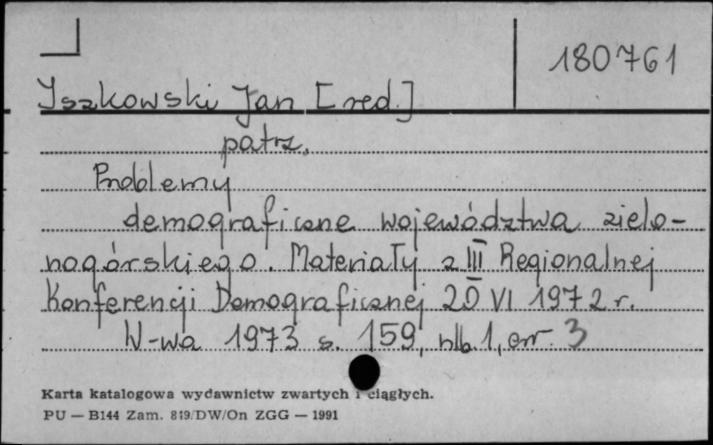 180761
Iszkowski Jan [red.]
patrz,
Problemy
demograficzne województwa zielo-
nogórskiego. Materiały z III Regionalnej
Konferencji Demograficznej 20 VI 1972 r.
W-wa 1973 s. 159, nlb 1, err. 3
Karta katalogowa wydawnictw zwartych i ciągłych.
PU — B144 Zam. 819/DW/On ZGG — 1991